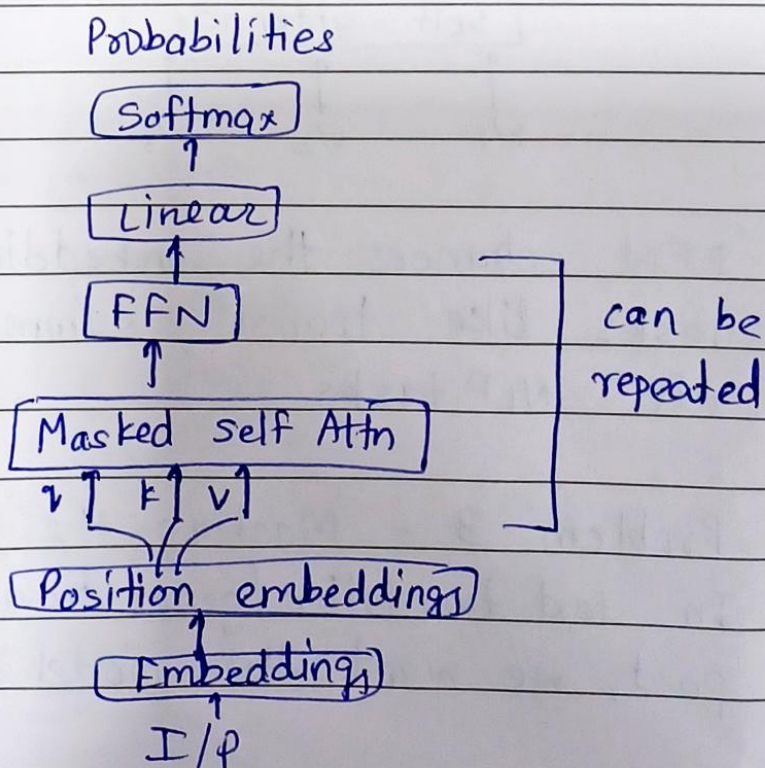 Probabilities
Softmax
Linear
FFN
can be
repeated
Masked self Attn
q k v
Position embeddings
Embeddings
I/P